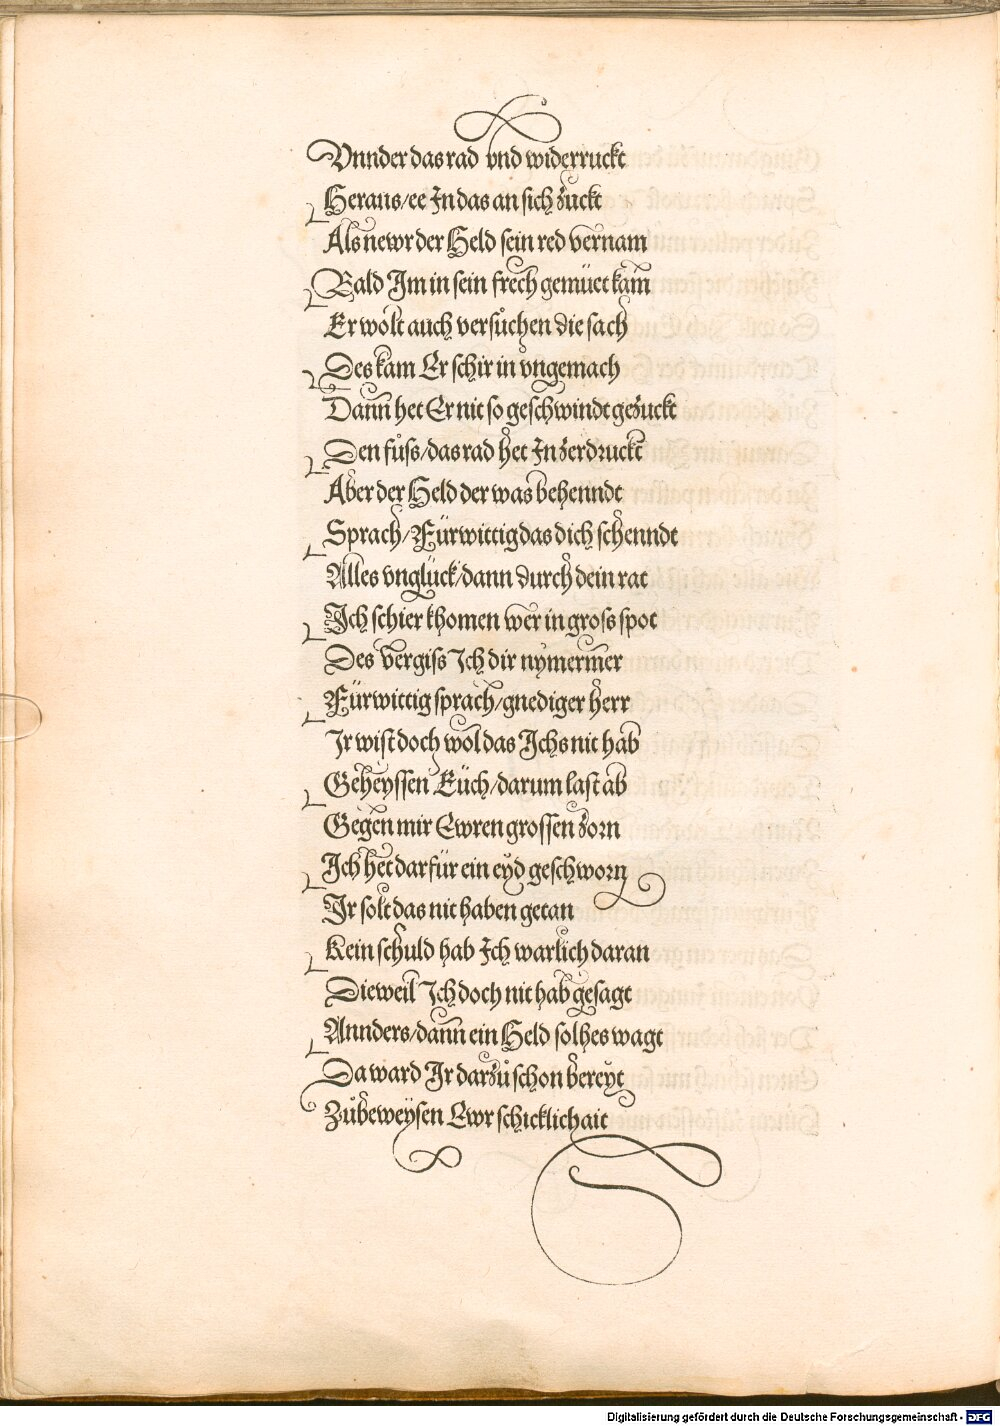 Vnnder das rad vnd widerruckt
Heraus/ee In das an sich zuckt
Als newr der Held sein red vernam
Bald Im in sein frech gemüet kam̄
Er wolt auch versůchen die sach
Des kam Er schir in vngemach
Dann het Er nit so geschwindt gezuckt
Den fůss/das rad het In zerdruckt
Aber der Held der was behenndt
Sprach/Fürwittig das dich schenndt
Alles vnglück/dann durch dein rat
Ich schier khomen wer in gross spot
Des vergiss Ich dir nymermer
Fürwittig sprach/gnediger herr
Ir wist doch wol das Ichs nit hab
Geheyssen Eüch/darum last ab
Gegen mir Ewren grossen zorn
Ich het darfür ein eyd geschworn
Ir solt das nit haben getan
Kein schuld hab Ich warlich daran
Dieweil Ich doch nit hab gesagt
Annders/dann ein Held solhes wagt
Da ward Ir darzů schon bereyt
Zůbeweysen Ewr schicklichait
Digitalisierung gefördert durch die Deutsche Forschungsgemeinschaft - DFG